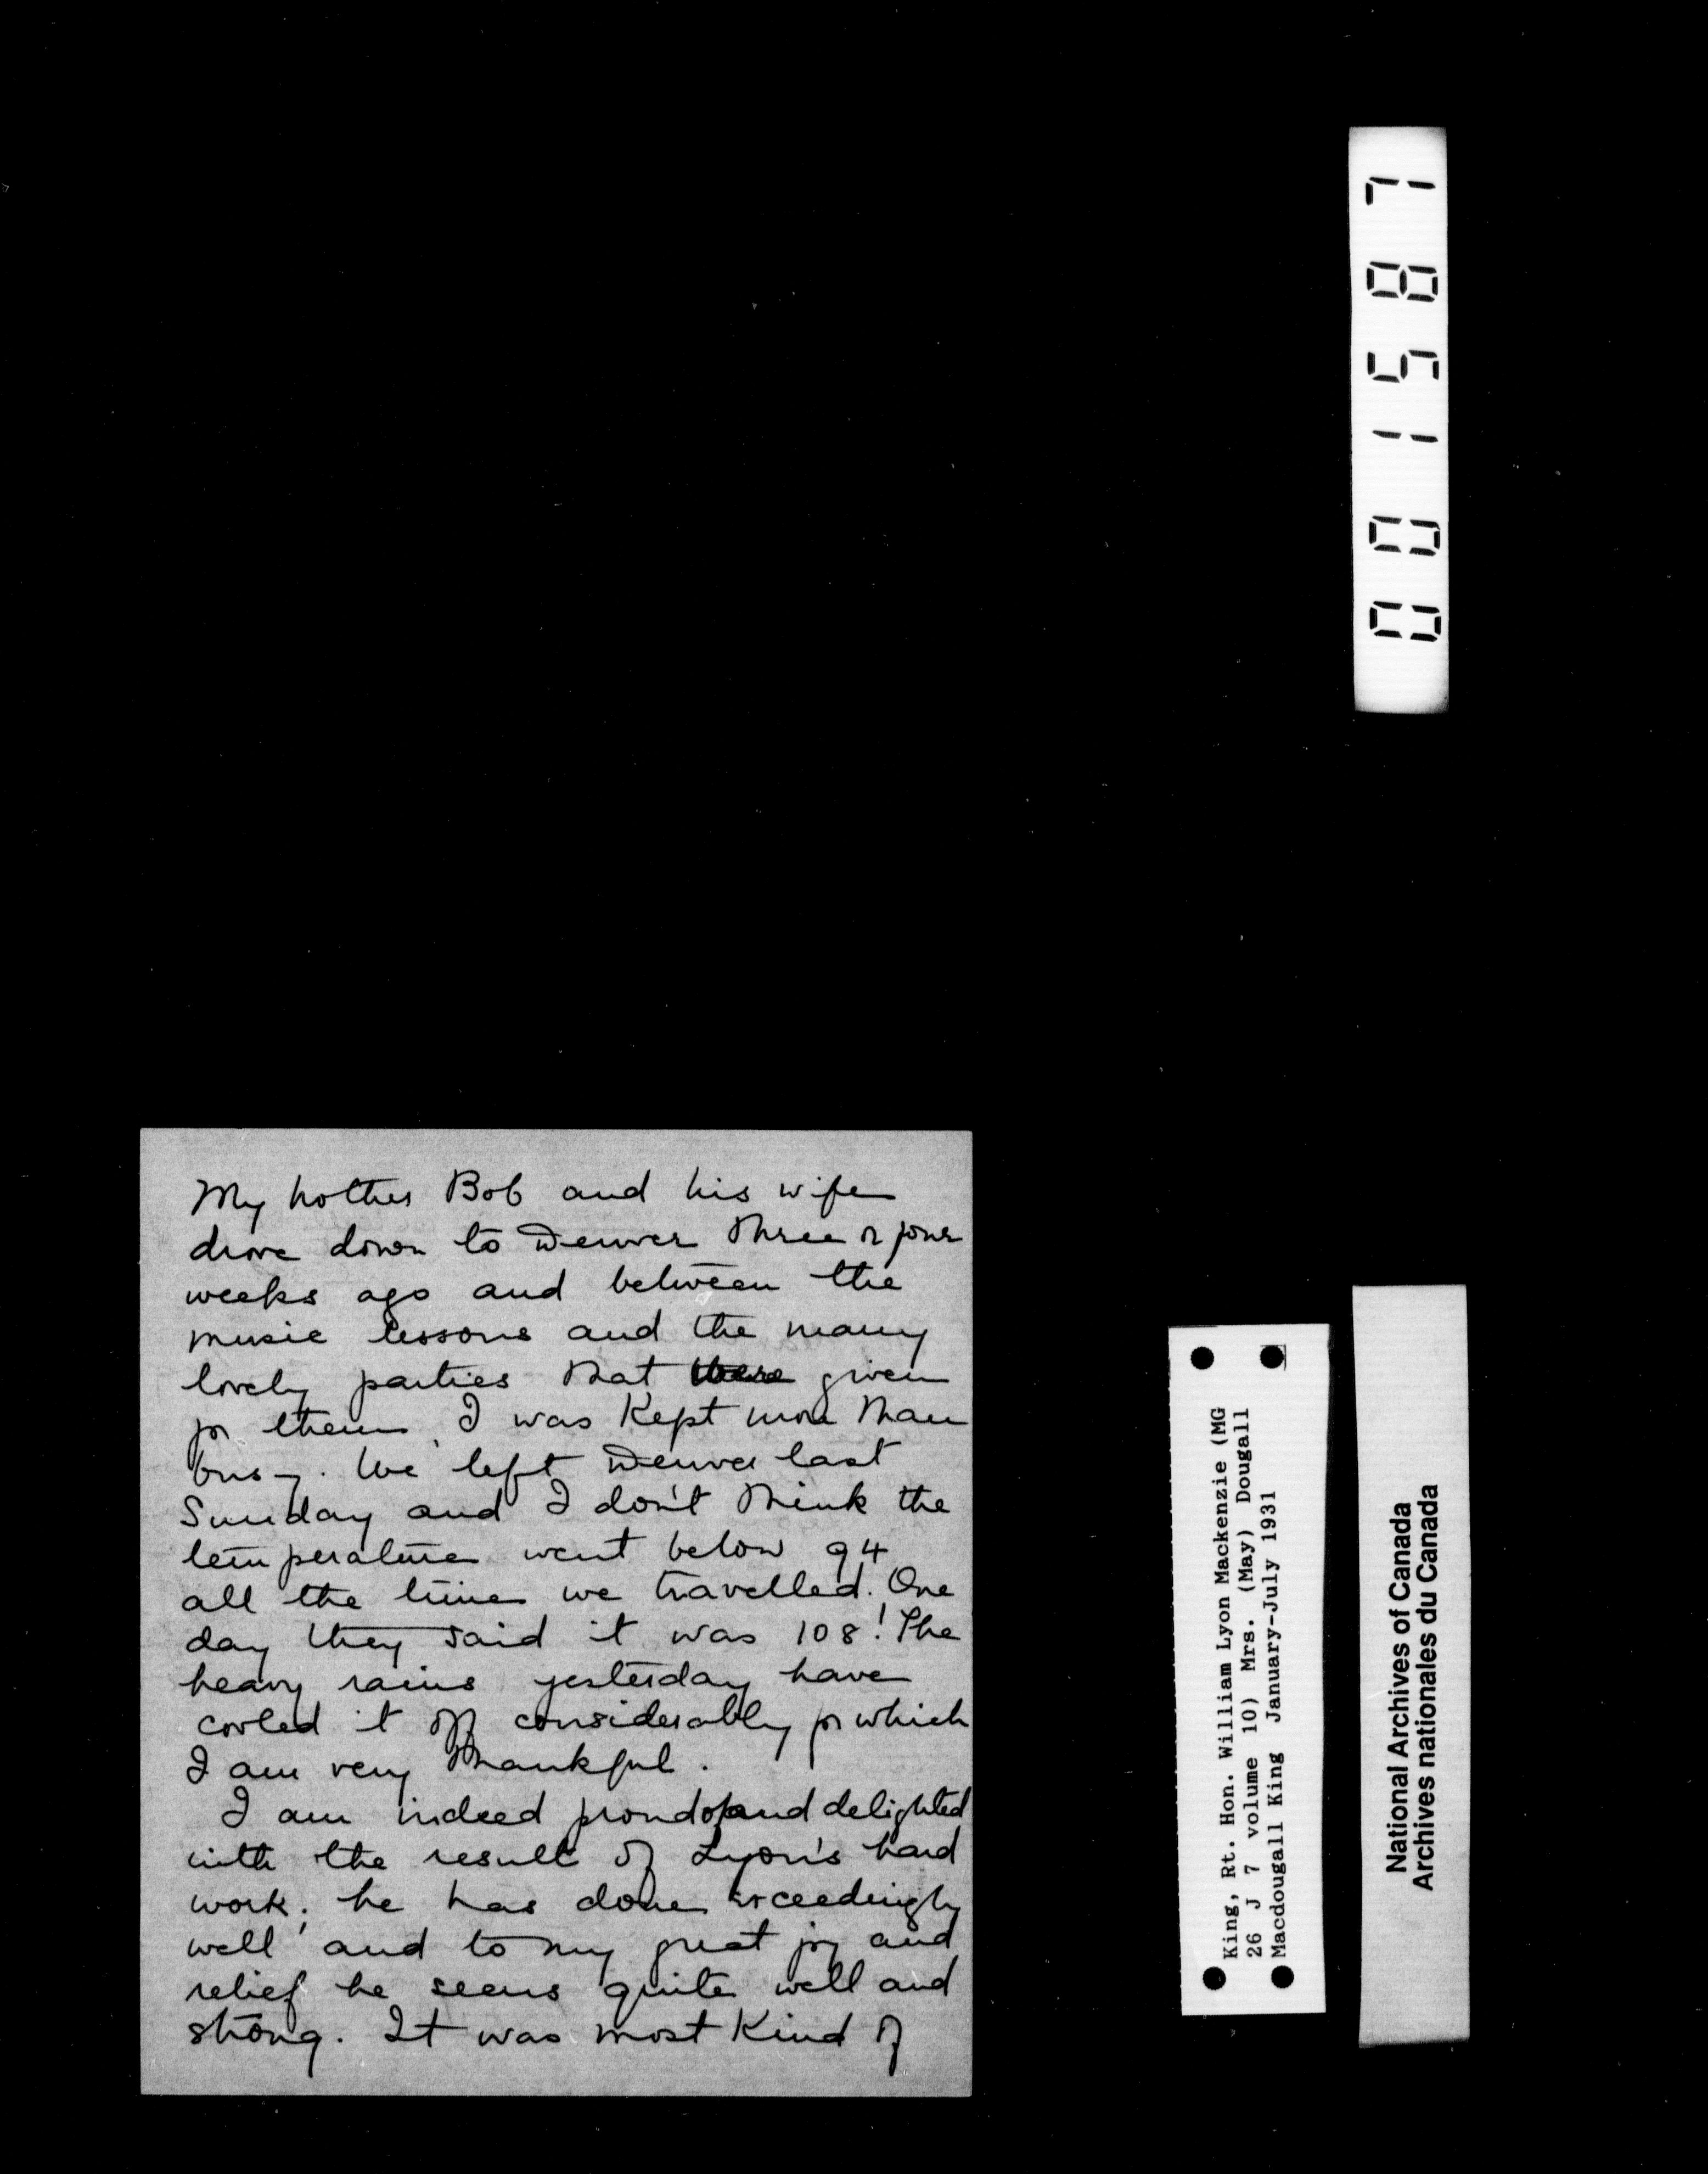 My brother Bob and his wife
drove down to Denver three or four
weeks ago and between the
music lessons and the many
lovely parties that were given
for them, I was kept more than
busy. We left Denver last
Sunday and I don't think the
temperature went below 94
all the time we travelled. One
day they said it was 108! The
heavy rains yesterday have
cooled it off considerably for which
I am very thankful.
I am indeed proud of and delighted
with the result of Lyon's hard
work; he has done exceedingly
well and to my great joy and
relief he seems quite well and
strong. It was most kind of
001587
King, Rt. Hon. William Lyon Mackenzie (MG
26 J 7 volume 10) Mrs. (May) Dougall
Macdougall King January-July 1931
National Archives of Canada
Archives nationales du Canada